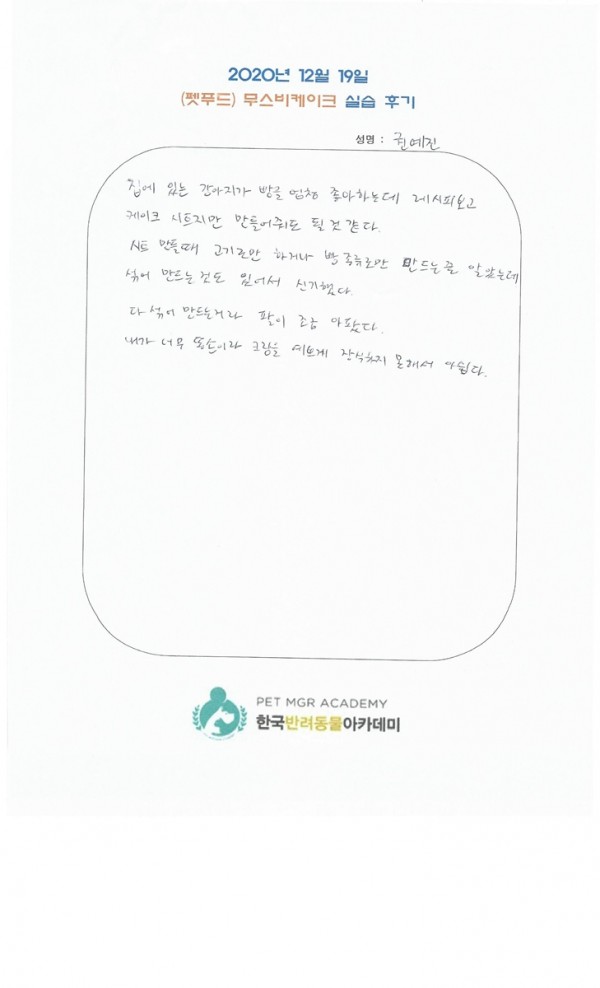 2020년 12월 19일
(펫푸드) 무스비케이크 실습 후기
성명 : 권예진
집에 있는 강아지가 빵을 엄청 좋아하는데 레시피보고
케이크 시트지만 만들어줘도 될 것 같다.
시트 만들때 고기로만 하거나 빵 종류로만 만드는줄 알았는데
섞어 만드는것도 있어서 신기했다.
다 섞어 만드는거라 팔이 조금 아팠다.
내가 너무 똥손이라 크림을 예쁘게 장식하지 못해서 아쉽다.
PET MGR ACADEMY
한국반려동물아카데미